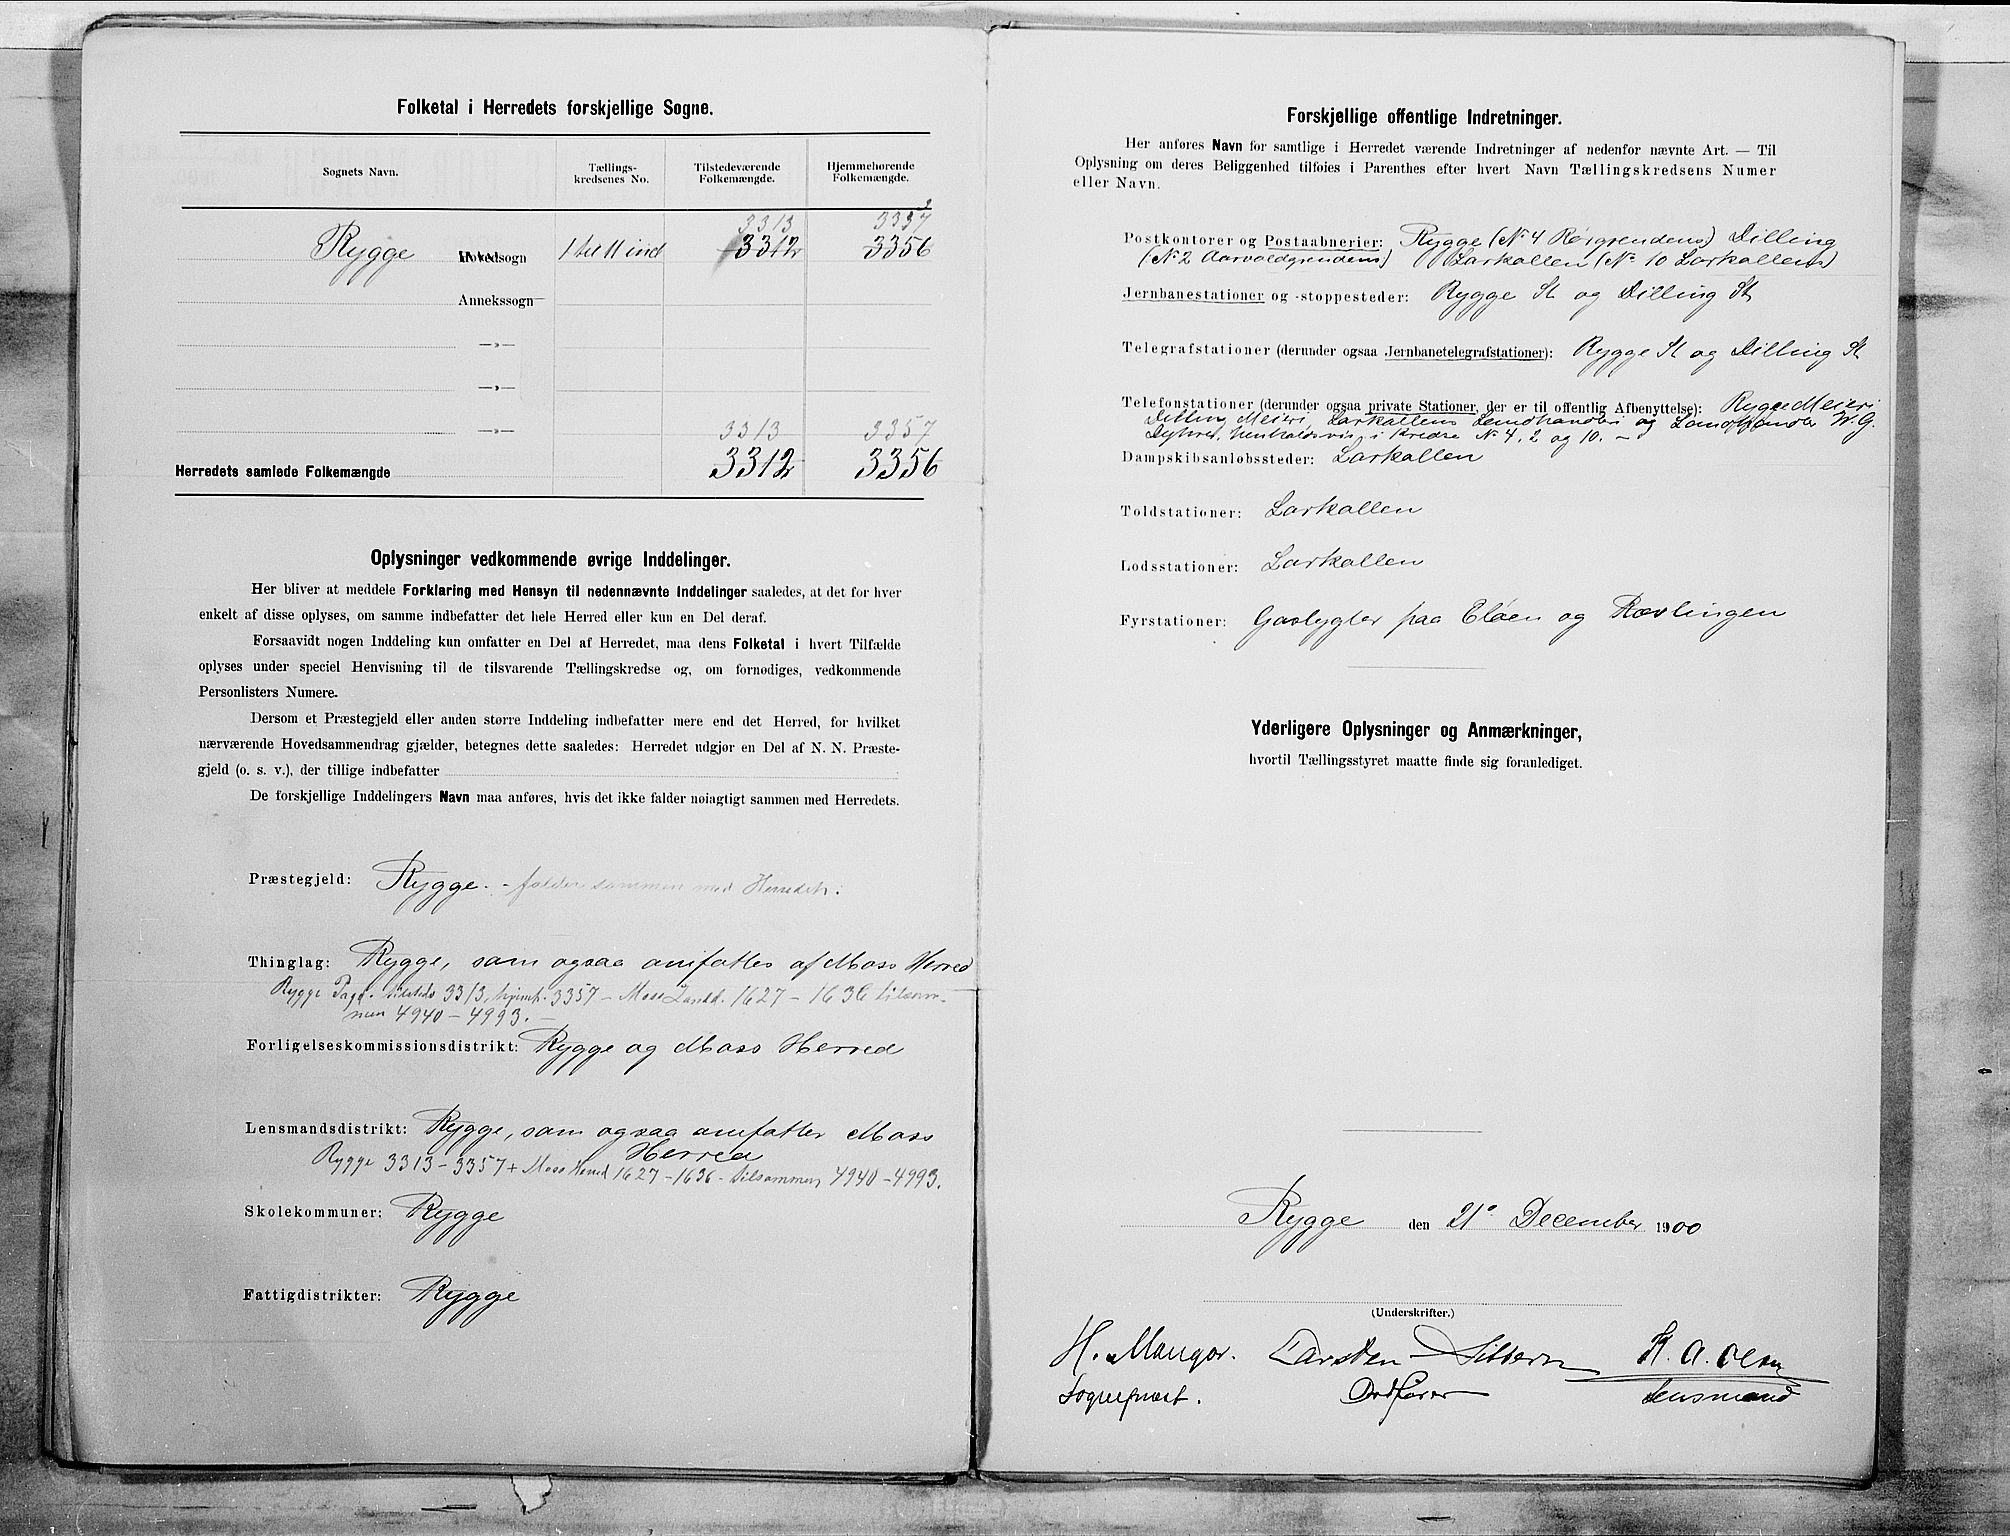 Folketal i Herredets forskjellige Sogne.
Sognets Navn. Tællings-kredsenes No. Tilstedeværende Folkemængde. Hjemmehørende Folkemængde.
3313 3357
Rygge Hovedsogn 1 til 11 incl 3312 3356
Annekssogn
—»—
—»—
—»— 3313 3357
Herredets samlede Folkemængde 3312 3356
Oplysninger vedkommende øvrige Inddelinger.
Her bliver at meddele Forklaring med Hensyn til nedennævnte Inddelinger saaledes, at det for hver
enkelt af disse oplyses, om samme indbefatter det hele Herred eller kun en Del deraf.
Forsaavidt nogen Inddeling kun omfatter en Del af Herredet, maa dens Folketal i hvert Tilfælde
oplyses under speciel Henvisning til de tilsvarende Tællingskredse og, om fornødiges, vedkommende
Personlisters Numere.
Dersom et Præstegjeld eller anden større Inddeling indbefatter mere end det Herred, for hvilket
nærværende Hovedsammendrag gjælder, betegnes dette saaledes: Herredet udgjør en Del af N. N. Præste-
gjeld (o. s. v.), der tillige indbefatter
De forskjellige Inddelingers Navn maa anføres, hvis det ikke falder nøiagtigt sammen med Herredets.
Præstegjeld: Rygge. - falder sammen med Herredet.
Thinglag: Rygge, som ogsaa omfatter af Moss Herred
Rygge Pgd. tilstede 3313, hjemh. 3357 - Moss Landd. 1627 - 1636 tilsam-
men 4940 - 4993. -
Forligelseskommissionsdistrikt: Rygge og Moss Herred
Lensmandsdistrikt: Rygge, som ogsaa omfatter Moss
Herred
Rygge 3313 - 3357 + Moss Herred 1627 - 1636 - tilsammen 4940 - 4993.
Skolekommuner: Rygge
Fattigdistrikter: Rygge
Forskjellige offentlige Indretninger.
Her anføres Navn for samtlige i Herredet værende Indretninger af nedenfor nævnte Art. — Til
Oplysning om deres Beliggenhed tilføies i Parenthes efter hvert Navn Tællingskredsens Numer
eller Navn.
Postkontorer og Postaabnerier: Rygge (No 4 Rørgrendens) Dilling
(No 2 Aarvoldgrendens) Larkollen (No 10 Larkollens)
Jernbanestationer og -stoppesteder: Rygge St og Dilling St
Telegrafstationer (derunder ogsaa Jernbanetelegrafstationer): Rygge St og Dilling St
Telefonstationer (derunder ogsaa private Stationer, der er til offentlig Afbenyttelse): Rygge Meieri
Dilling Meieri, Larkollens Landhandleri og Landhandler W. G.
Dyhre, henholdsvis i Kredse No 4, 2 og 10. -
Dampskibsanløbssteder: Larkollen
Toldstationer: Larkollen
Lodsstationer: Larkollen
Fyrstationer: Gaslygter paa Eløen og Rævlingen
Yderligere Oplysninger og Anmærkninger,
hvortil Tællingsstyret maatte finde sig foranlediget.
Rygge den 21º December 1900
(Underskrifter.)
H. Mangor. Carsten Sibbern H. A. Olsen
Sognepræst. Ordfører Lensmand